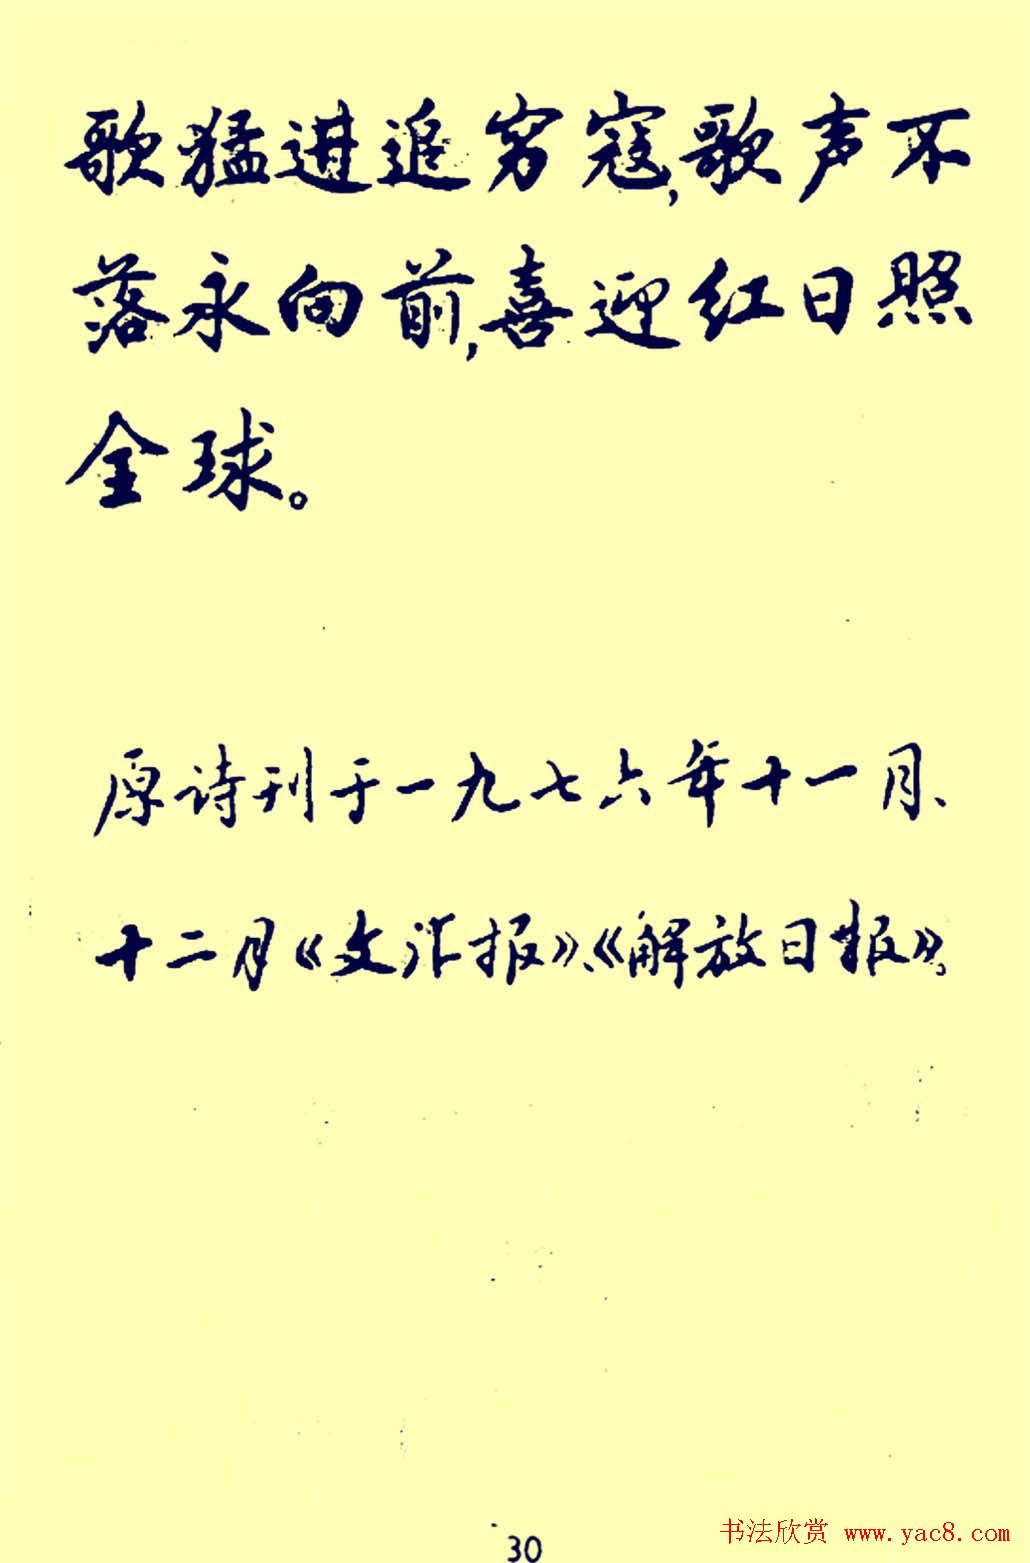 歌猛进追穷寇,歌声不
落永向前,喜迎红日照
全球。
原诗刊于一九七六年十一月、
十二月《文汇报》、《解放日报》。
30
书法欣赏 www.yac8.com